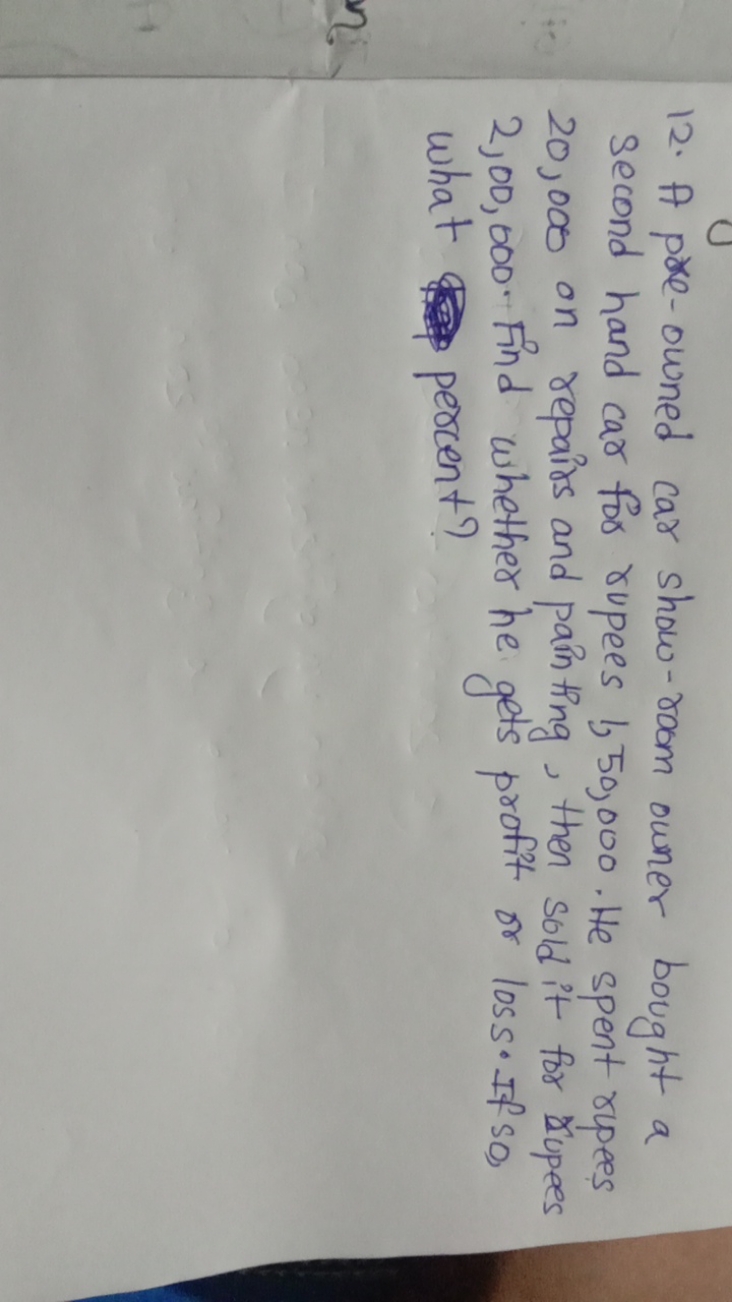 12. A pre-owned car show-room owner bought a
second hand car for rupees 1,50,000. He spent rupees
20,000 on repairs and painting, then sold it for rupees
2,00,000. Find whether he gets profit or loss. If so,
what percent?
n.